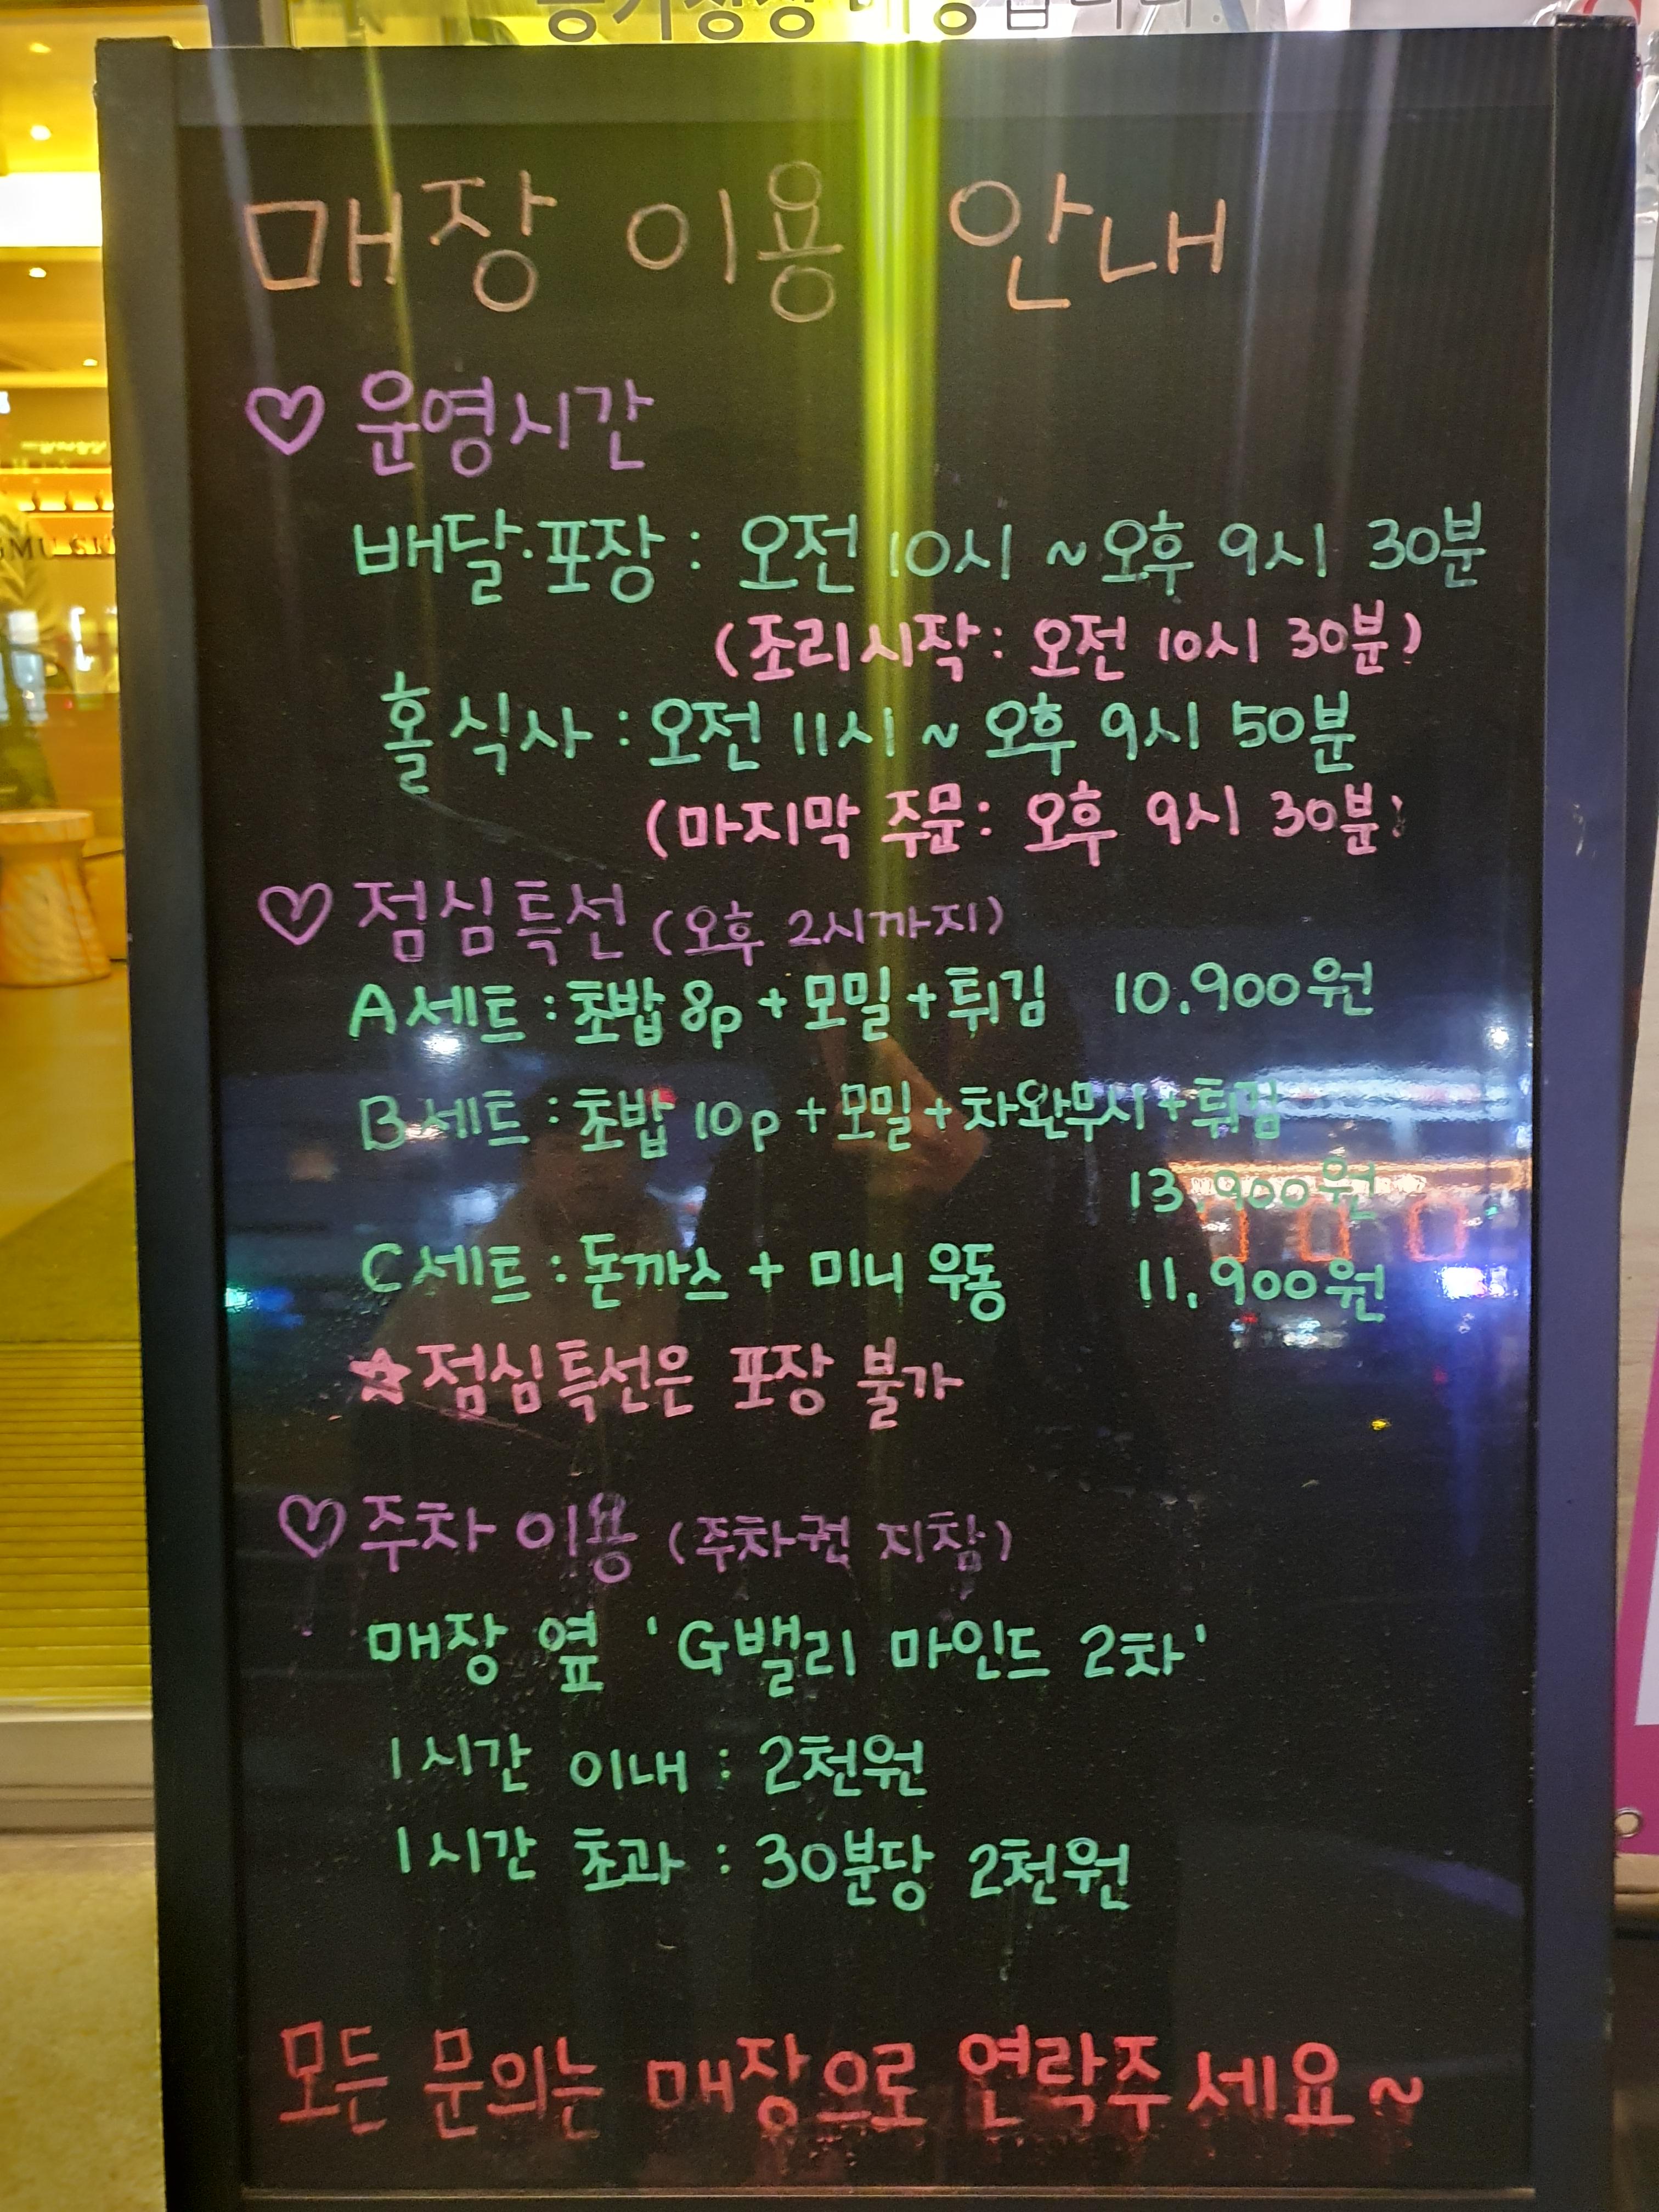 매장 이용 안내
♡ 운영시간
배달·포장 : 오전 10시 ~ 오후 9시 30분
(조리시작 : 오전 10시 30분)
홀 식사 : 오전 11시 ~ 오후 9시 50분
(마지막 주문 : 오후 9시 30분)
♡ 점심특선 (오후 2시까지)
A세트 : 초밥 8p + 모밀 + 튀김 10.900원
B세트 : 초밥 10p + 모밀 + 차완무시 + 튀김
13,900원
C세트 : 돈까스 + 미니 우동 11,900원
☆점심특선은 포장 불가
♡ 주차 이용 (주차권 지참)
매장 옆 'G밸리 마인드 2차'
1시간 이내 : 2천원
1시간 초과 : 30분당 2천원
모든 문의는 매장으로 연락주세요~